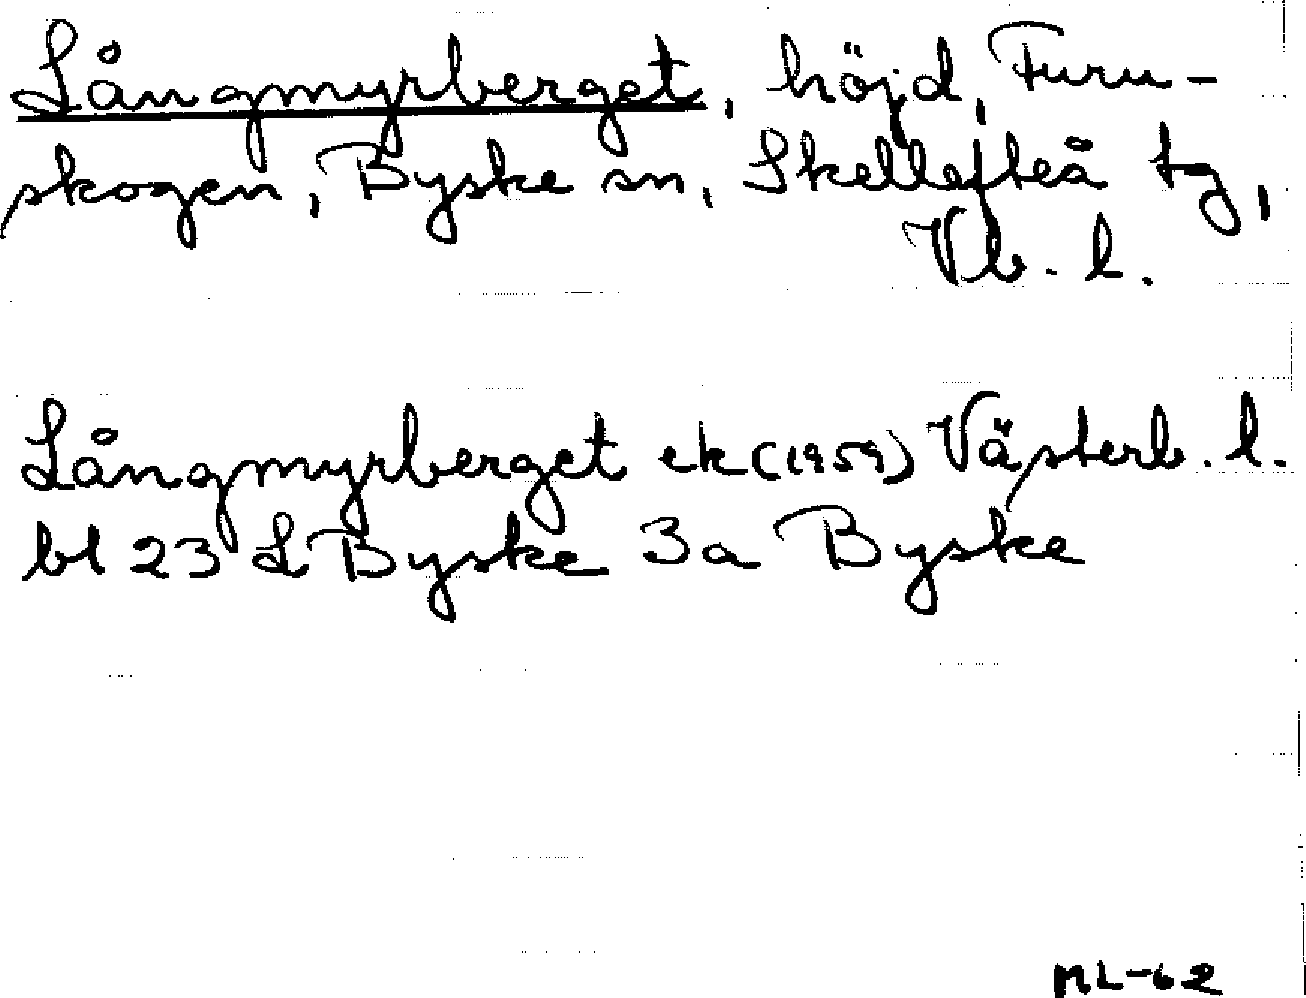 Långmyrberget, höjd, Furu-
skogen, Byske sn, Skellefteå tg,
Vb. l.
Långmyrberget ek (1959) Västerb. l.
bl 23 L Byske 3a Byske
ML-62